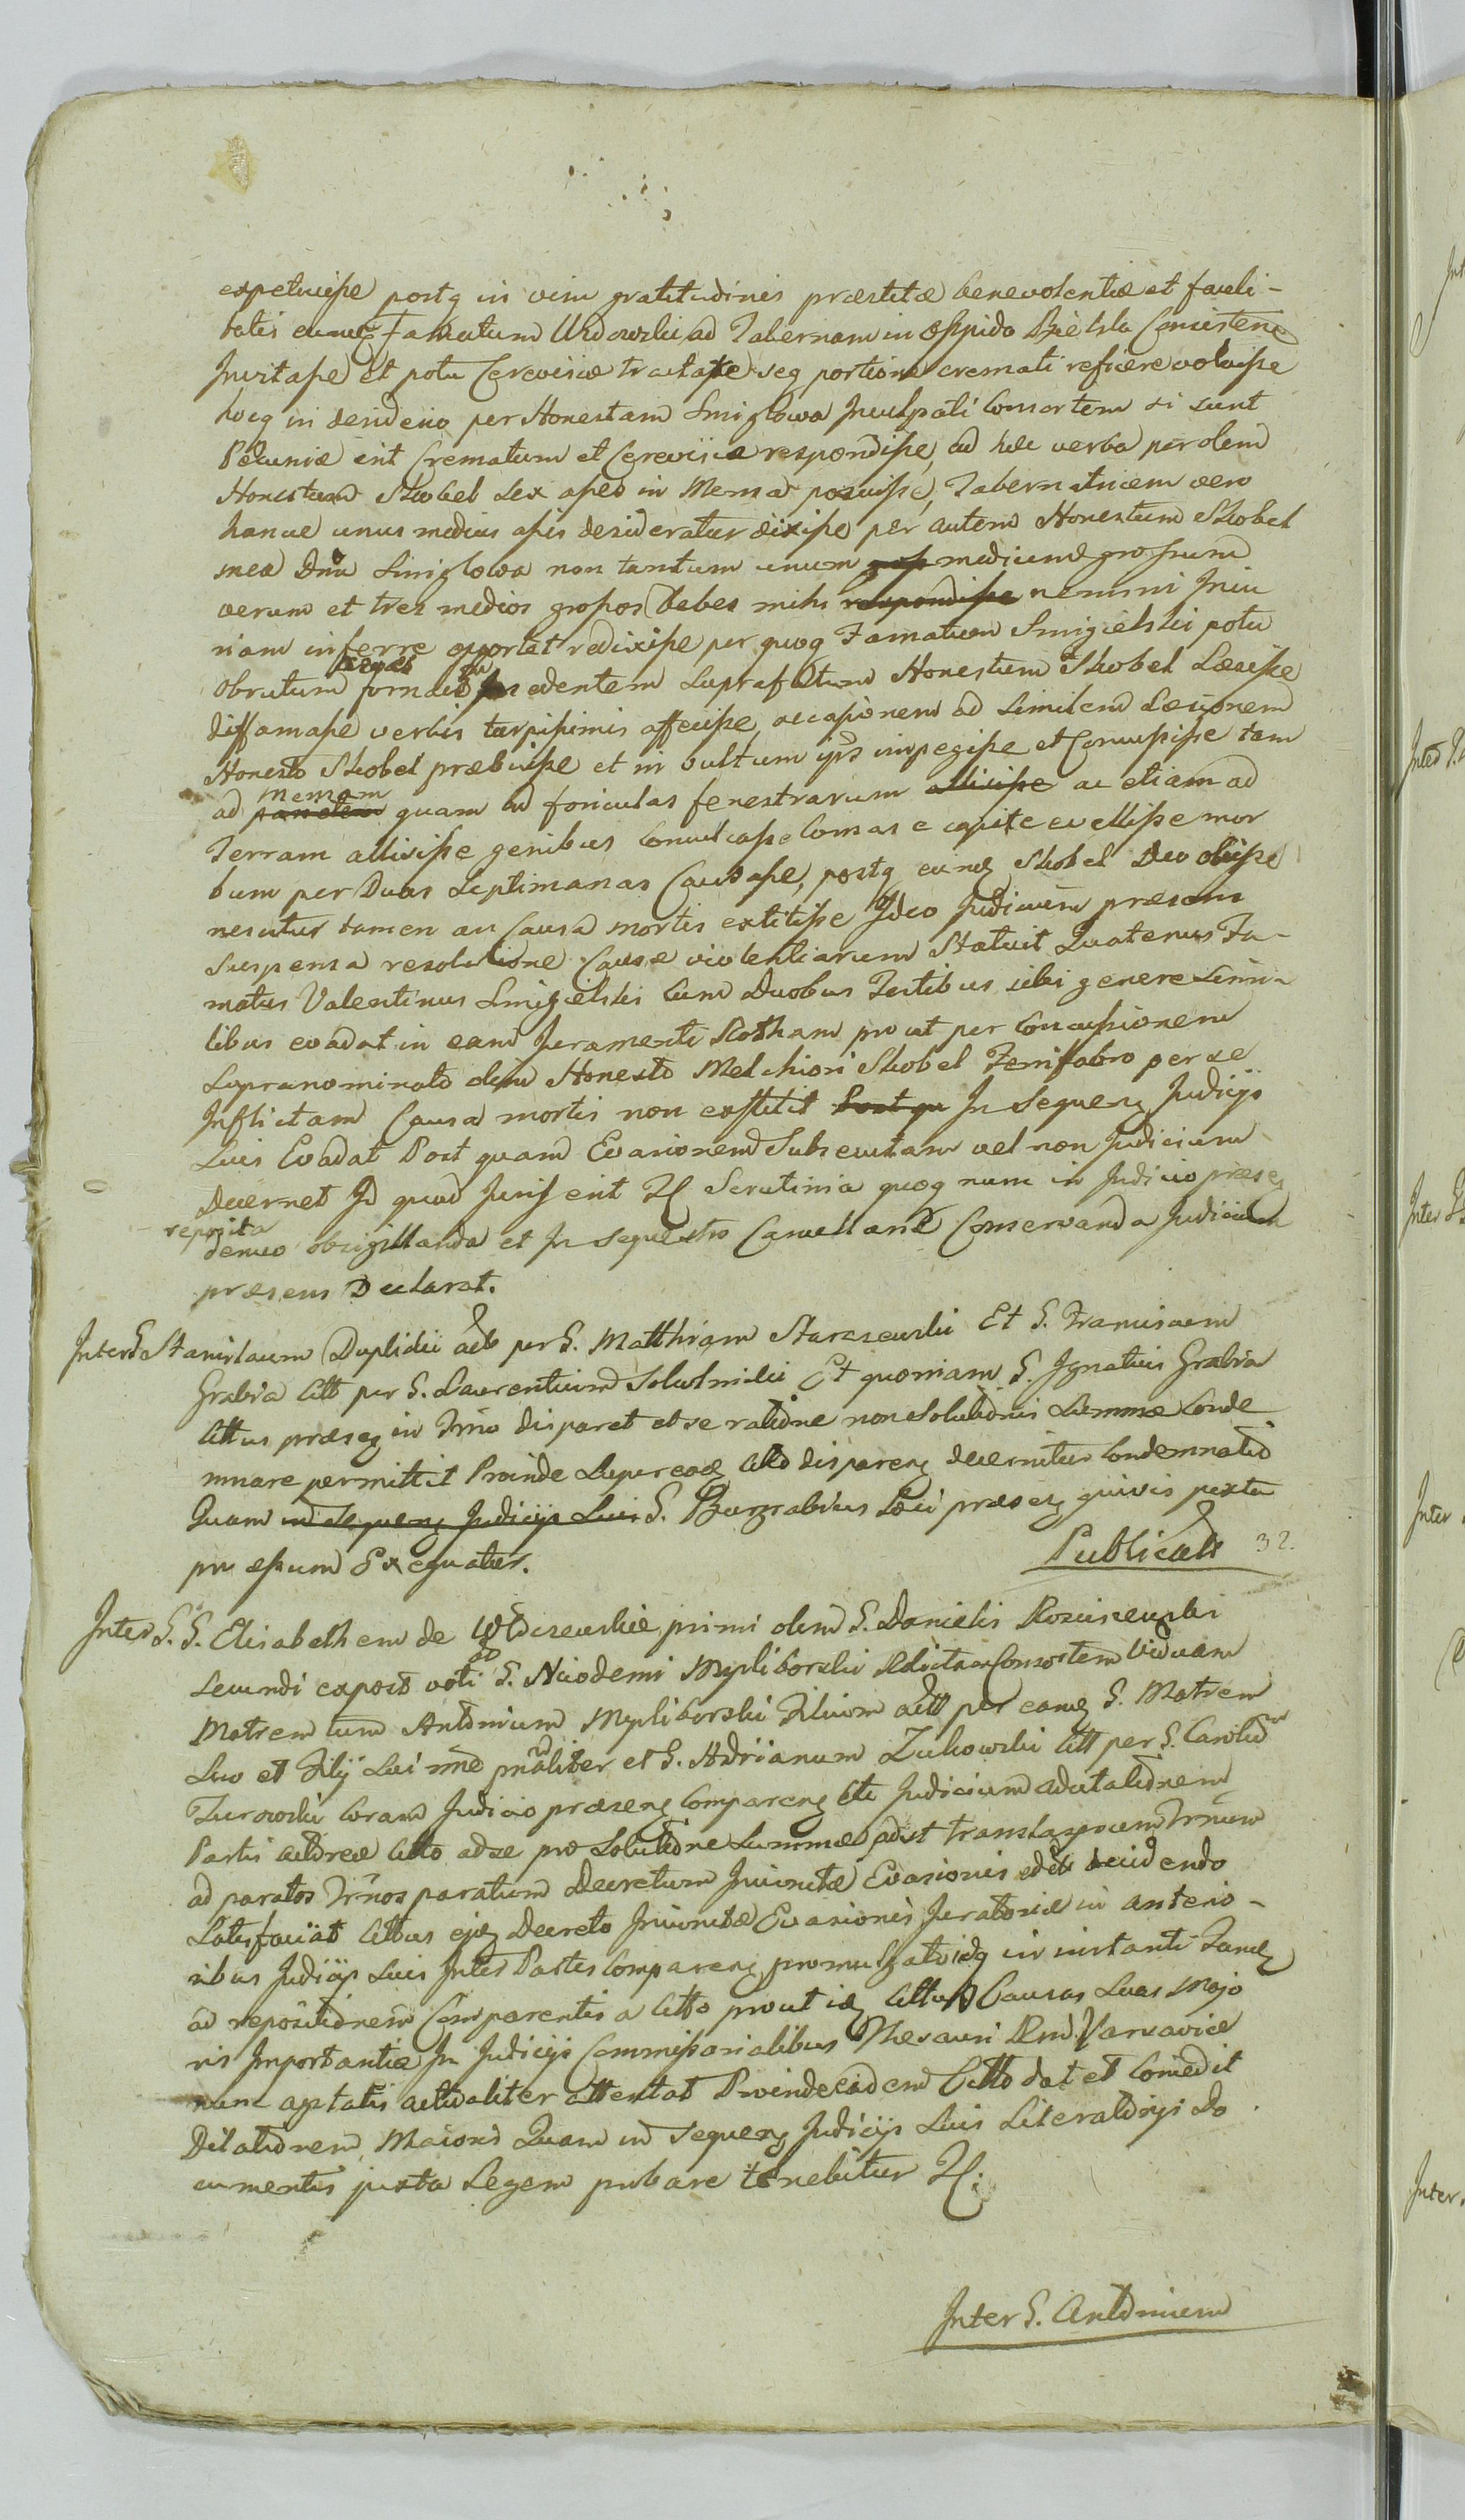 expetiuisse postq in vim gratitudinis præstitæ benevolentiæ et facili-
tatis eumq Famatum Urdowski ad Tabernam in oppido Bielsk Consistenē
Invitasse et potu Cerevisiæ tractasse seq portione cremati reficere voluisse
hocq in desiderio per Honestam Smiglowa Inculpati Consortem si sunt
Pecuniæ erit Crematum et Cerevisia respondisse, ad hæc verba per olim
Honestum Skobel sex asses in Mensa posuisse, Tabernatricem vero
hancce unus medius assis desideratur dixisse per autem Honestum Skobel
mea Dna Smiglowa non tantum unum medium grossum
verum et tres medios grossos debes mihi respondisse nemini Iniu
riam inferre oportet redixisse per quoq Famatum Smigielski potu
obrutum penes fornacē sedentem suprafatum Honestum Skobel Læsisse
diffamasse verbis turpissimis affecisse, occasionem ad similem Læsionem
Honesto Skobel præbuisse et in vultum ipsi impegisse et Concussisse tam
ad parietem mensam quam ad foriculas fenestrarum allisisse ac etiam ad
Terram allisisse genibus Conculcasse Comas e capite evellisse mor
bum per Duas Septimanas Causasse, postq eundē Skobel Deo obiisse
nescitur tamen an Causa mortis extitisse Ideo Judicium præsens
suspensa resolutione Causæ violentiarum Statuit Quatenus Fa-
matus Valentinus Smigielski Cum Duobus Testibus sibi genere simi-
libus evadat in eam Juramenti Rotham prout per Concussionem
supranominato olim Honesto Melchiori Skobel Ferrifabro per se
Inflictam Causa mortis non exstitit Postqu In Sequenƺ Judicijs
Suis Evadat Post quam Evasionem Subsecutam vel non Judicium
Decernet Id quod Juris erit Scrutinia quoq nunc in Judicio præsenƺ
reposita
denuo obsigillanda et In sequestro Cancellariæ Conservanda Judicium
præsens Declarat.
Inter G. Stanislaum Duplicki actō per G. Matthiam Staraszewski Et G. Franciscum
Grabia Citt per G. Laurentium Et quoniam G. Ignatius Grabia
Cittus præsenƺ in Trno disparet et se ratione non Solutionis Summæ Conde
mnare permittit Proinde Super eodē Citto disparenƺ decernitur Condemnatio
Quam in Sequenƺ Judicijs Suis G. Burgrabius Loci præsenƺ quivis juxta
pressum Exequatur.
Publicat 32.
Inter G. G. Elisabetham de primi olim G. Danielis Rosciszewski
secundi expost voti G. Nicodemi Mysliborski Relictam Consortem Viduam
Matrem tum Antonium Mysliborski Filium actō per eandē G. Matrem
suo et Filij sui nñe pñaliter et G. Adrianum Zukowski Citt per G. Carolum
Turowski Coram Judicio præsenƺ Comparenƺ Etc Judicium ad citationem
Partis Actoreæ Citto ad se pro Solutione Summæ translapsum Trnum
ad paratos Trnos paratum Decretum Iniunctæ Evasionis
Satisfaciat Cittus ejdē Decreto Iniunctæ Evasionis Juratoriæ in anterio-
ribus Judicijs Suis Inter Partes Comparenƺ promulgato idq in instanti Tandē
ad repositionem Comparentis a Citto prout idē Cittus Causas Suas Majo
ris Importantiæ In Judicijs Commissorialibus Thesauri Regni Varsaviæ
nunc agitatis actualiter attentat Proinde eidem Citto dat et Concedit
Dilationem Maioris Quam in Sequenƺ Judicijs Suis Literatorijs Do
cumentis juxta Legem probare tenebitur
Inter G. Antonium